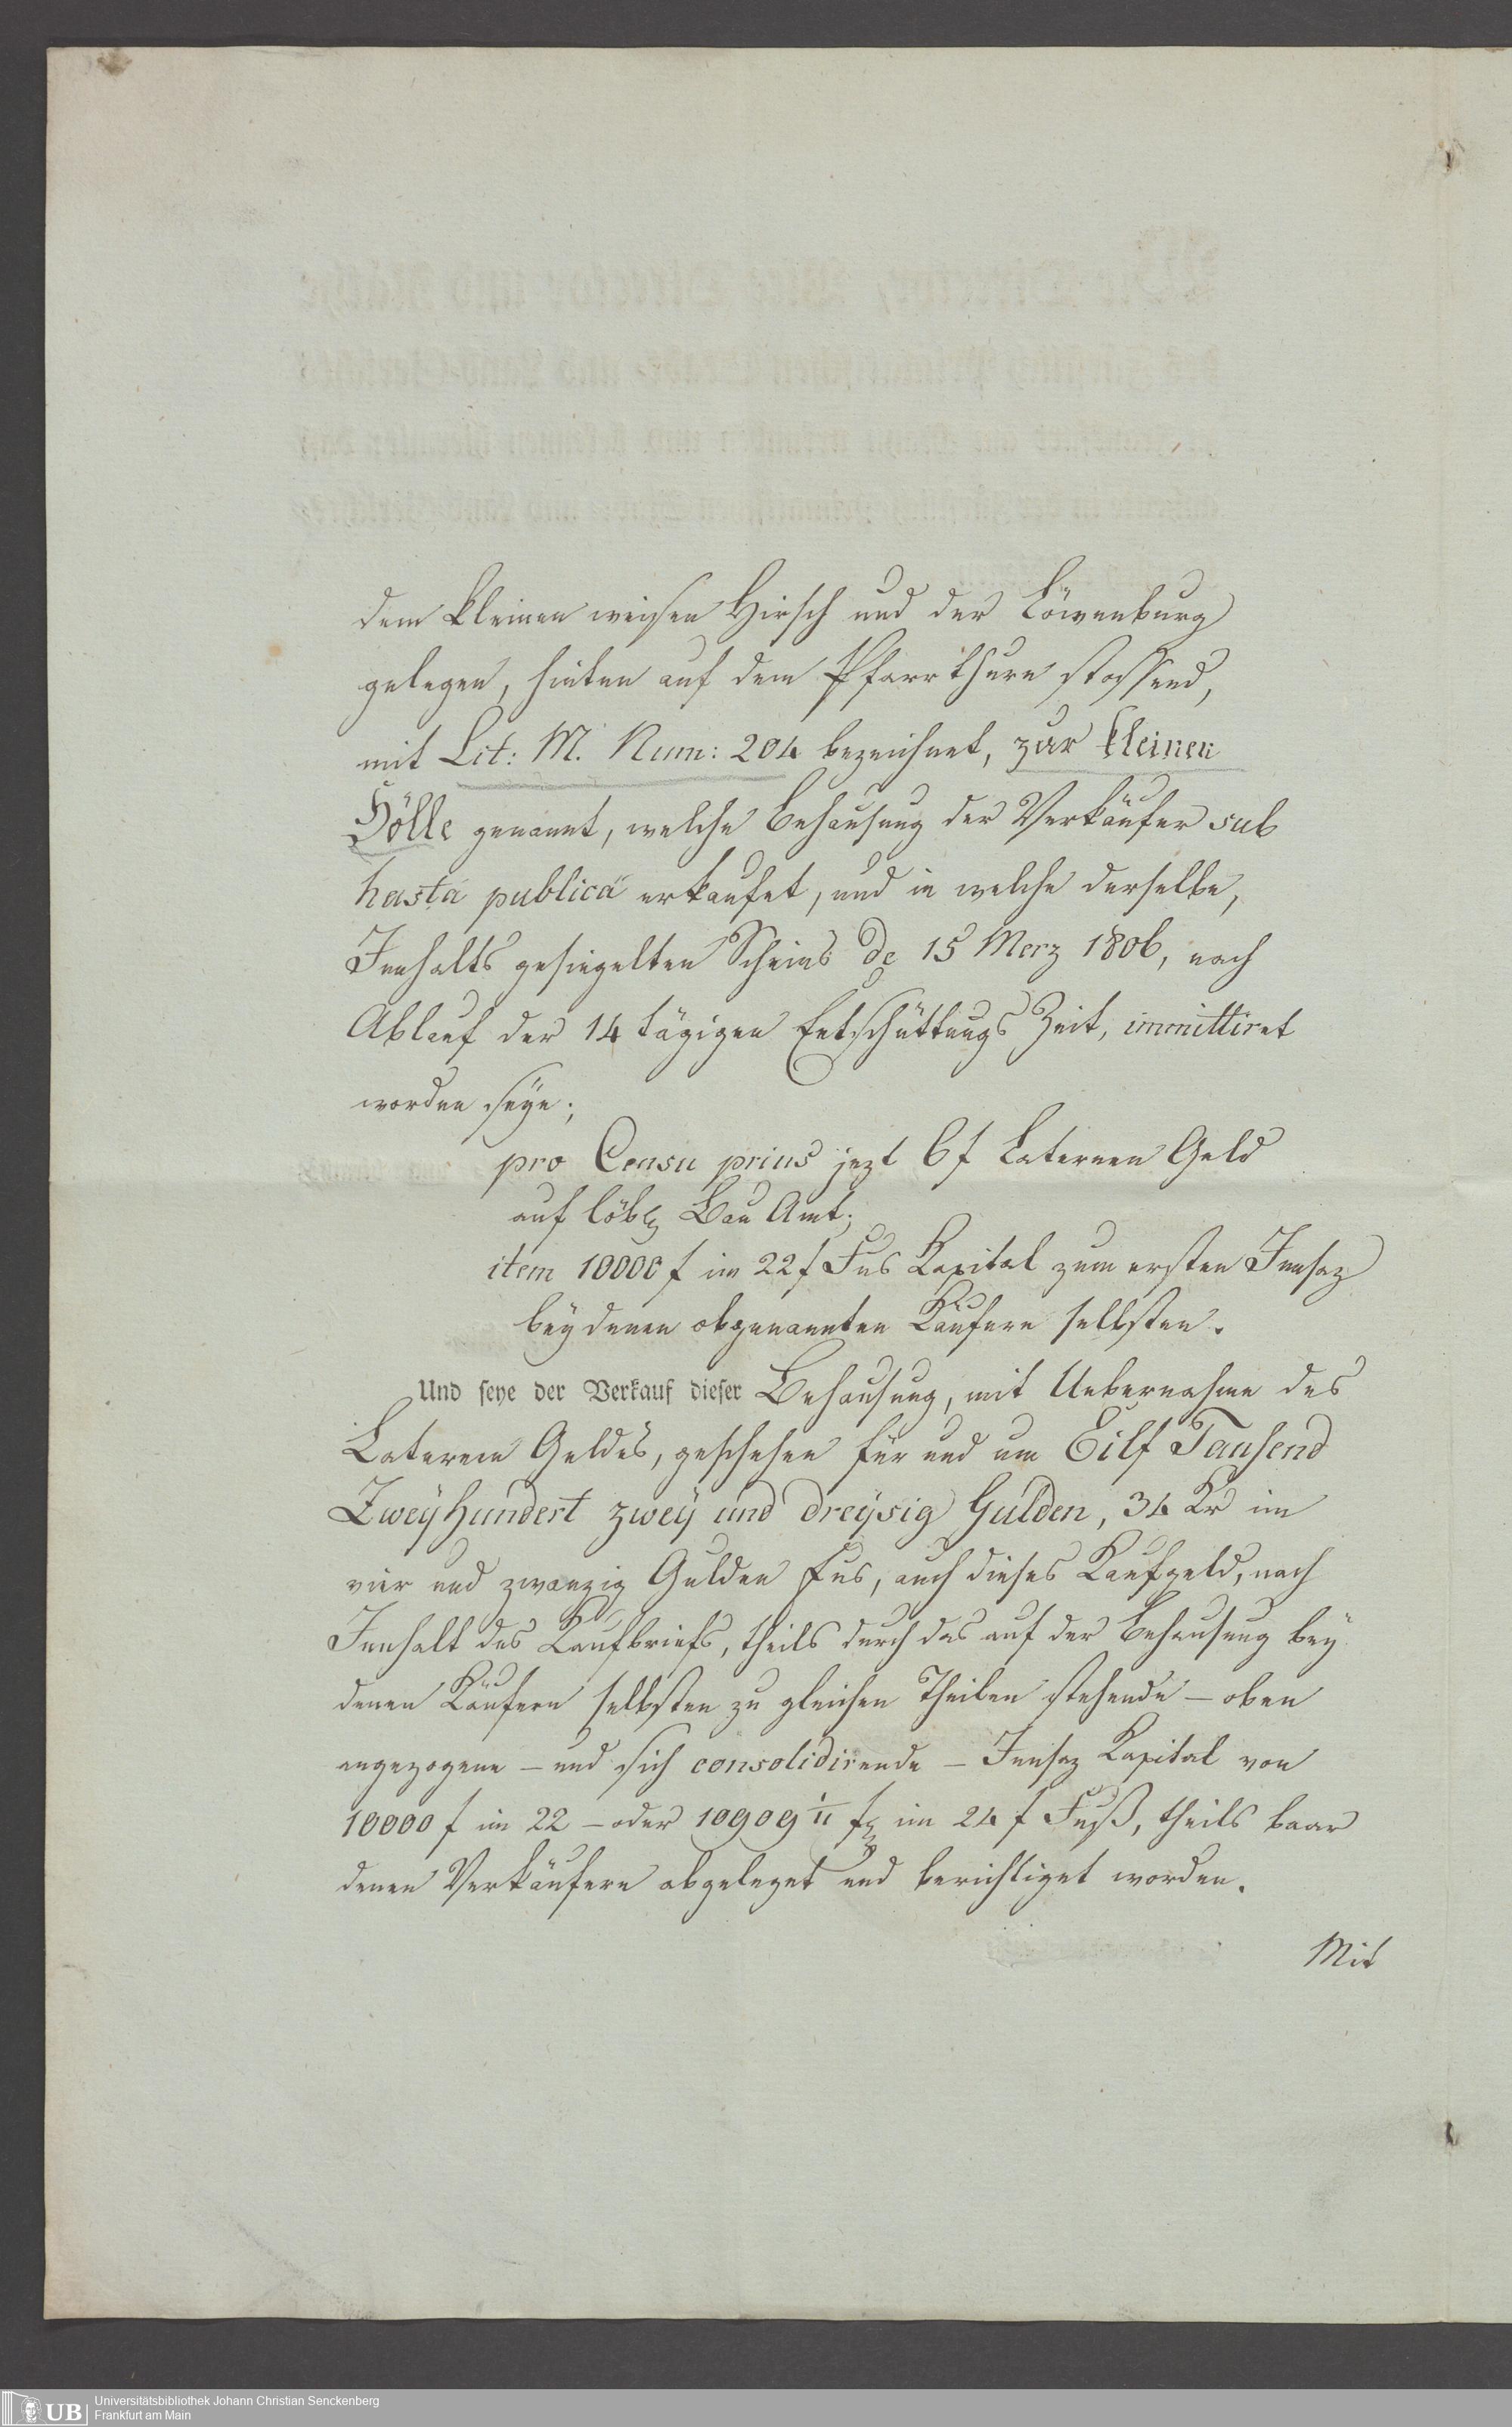 dem kleinen weisen Hirsch und der Löwenburg
gelegen, hinten auf dem Pfarrthurn stossend,
mit Lit: M. Num: 204 bezeichnet, zur kleinen
Hölle genannt, welche Behausung der Verkäufer sub
hasta publica erkaufet, und in welche derselbe,
Innhalts gesiegelten Scheins de 15 Merz 1806, nach
Ablauf der 14 tägigen Entschüttungs Zeit, immittiret
worden seye;
pro Censu prius jezt 6 f Laternen Geld
auf löbl Bau Amt;
item 10000 f im 22 f Fus Kapital zum ersten Innsaz
bey denen obgenannten Käufern selbsten.
Und seye der Verkauf dieser Behausung, mit Uebernahme des
Laternen Geldes, geschehen für und um Eilf Tausend
Zweyhundert zwey und dreysig Gulden, 34 Kr im
vier und zwanzig Gulden Fus, auch dieses Kaufgeld, nach
Innhalt des Kaufbriefs, theils durch das auf der Behausung bey
denen Käufern selbsten zu gleichen Theilen stehende – oben
angezogene – und sich consolidirende – Innsaz Kapital von
10000 f im 22 – oder 10909 1/11 f im 24 f Fuß, theils baar
denen Verkäufern abgeleget und berichtiget worden.
Mit
UB
Universitätsbibliothek Johann Christian Senckenberg
Frankfurt am Main